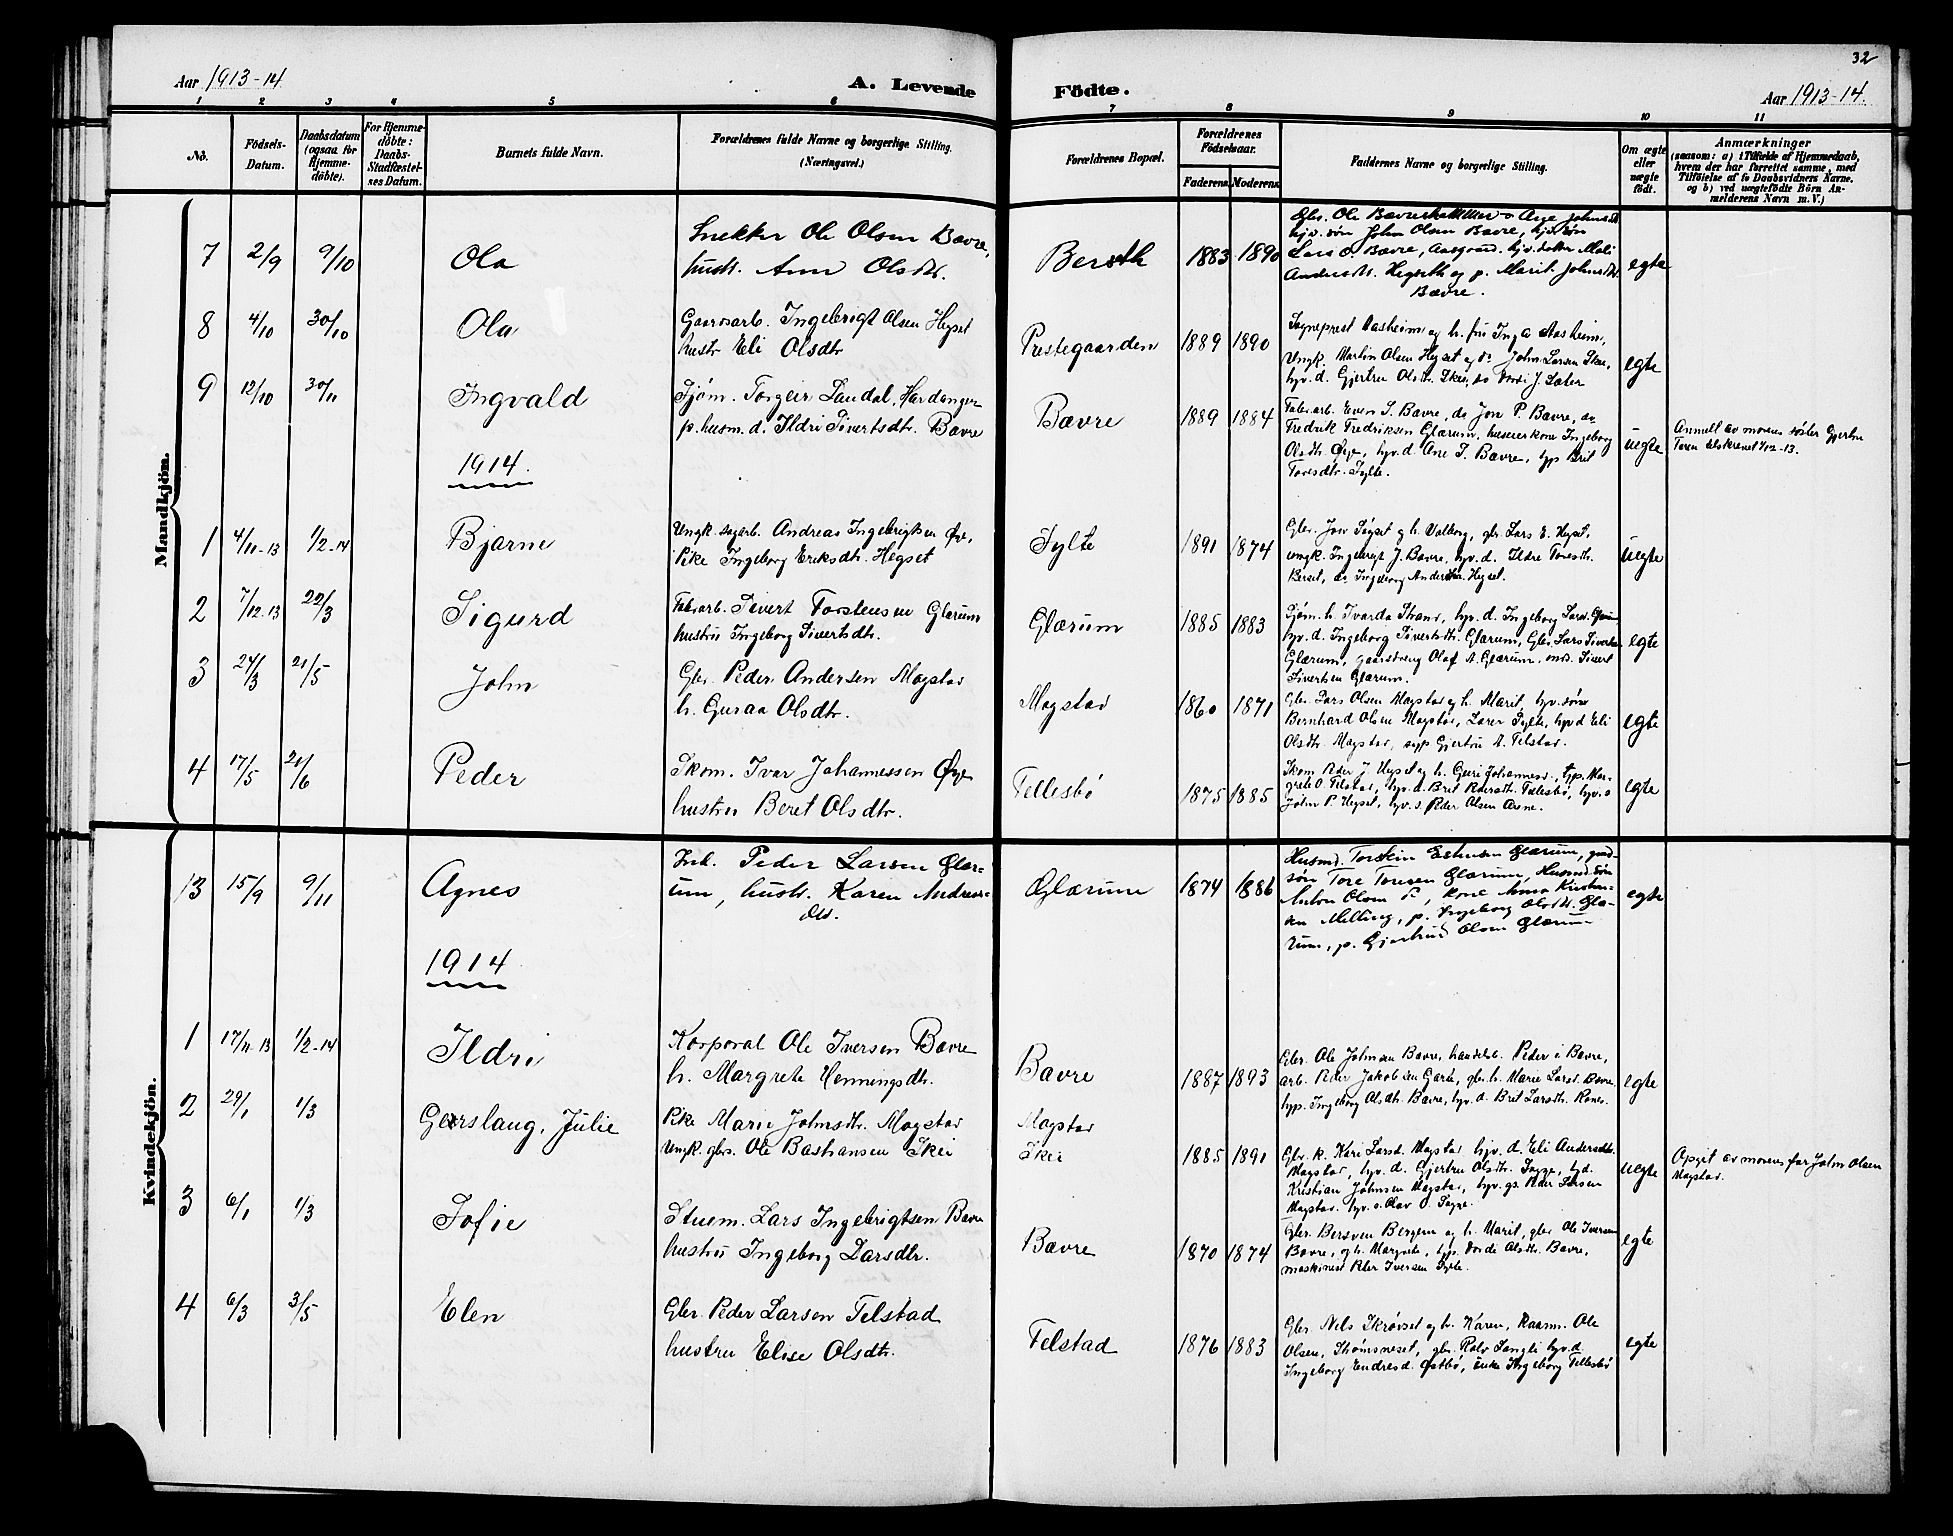 32
Aar 1913-14
A. Levende
Födte.
Aar 1913-14.
1 2 3 4 5 6 7 8 9 10 11
No.
Födsels-
Datum.
Daabsdatum
(ogsaa for
Hjemme-
döbte).
For Hjemme-
döbte:
Daabs-
Stadfæstel-
ses Datum.
Barnets fulde Navn.
Forældrenes fulde Navne og borgerlige Stilling.
(Næringsvei.)
Forældrenes Bopæl.
Forældrenes
Födselsaar.
Faderens. Moderens.
Faddernes Navne og borgerlige Stilling.
Om ægte
eller
uægte
födt.
Anmærkninger
(saasom: a) i Tilfælde af Hjemmedaab,
hvem der har forrettet samme, med
Tilföielse af to Daabsvidners Navne.
og b) ved uægtefödte Börn An-
melderens Navn m. V.)
Mandkjön.
7 2/9 9/10 Ola
Snekker Ole Olsen Bævre,
hustr. Ane Olsdtr.
1883 1890
hjv. søn John Olsen Bævre, hjv. søn
Lars O. Bævre, Aasgaard. hjv. datter Mali
Andersdtr. Hegseth og p. Marit Johnsdtr.
Bævre.
egte
8 4/10 30/10 Ola
Gaardsarb. Ingebrigt Olsen Hegset
hustr Eli Olsdtr
Prestegaarden 1889 1890
Sogneprest Aasheim og h. fru Inga Aasheim,
Ungk. Martin Olsen Hegset og do John Larsen Skei,
hjv. d. Gjertru Olsdtr. Skei, do J. Sæter
egte
9 12/10 30/11 Ingvald
Sjøm. Torgeir Sandal, Hardanger
p. husm. d. Ildri Sivertsdtr. Bævre
Bævre 1889 1884
Fabr.arb. Even S. Bævre, do Jon P. Bævre, do
Fredrik Fredriksen Glærum, husererkone Ingeborg
Olsdtr. Øye, hjv. d. Ane S. Bævre, hjp Brit
Toresdtr. Sylte.
uegte
Anmelt av morens søster Gjertru
1914
1 4/11-13 1/2-14 Bjarne
Ungk. sagarb. Andreas Ingebrigtsen Øye,
Pike Ingeborg Eriksdtr. Hegset
Sylte 1891 1874
Gbr. Jon Søyset og h. Valborg, gbr. Lars E. Hegset,
ungk. Ingebrigt J. Bævre, hjv. d. Ildri Toresdtr.
Berset, do Ingeborg Andersdtr. Hegset.
uegte
2 7/12-13 22/3 Sigurd
Fabr.arb. Sivert Torstensen Glærum
hustru Ingeborg Sivertsdtr.
Glærum 1885 1883
Sjøm. h. Ivarda Strand, hjv. d. Ingeborg Larsd. Glærum
hjv. d. Ingeborg Sivertsdtr. Glærum, Gbr. Lars Sivertsen
Glærum, gaardsdreng Olaf A. Glærum, Sivert
Sivertsen Glærum.
egte
3 24/3 21/5 John
Gbr. Peder Andersen Mogstad
h. Guraa Olsdtr.
Mogstad 1860 1871
Gbr. Lars Olsen Mogstad og h. Marit, hjv. søn
Bernhard Olsen Mogstad, Lærer Sylte, hjv. d. Eli
Olsdtr. Mogstad, Gjertru A. Telstad.
egte
4 17/5 21/6 Peder
Skom. Ivar Johannessen Øye
hustru Beret Olsdtr.
Tellesbø 1875 1885
Skom. Peder J. Hegset og h. Guri Johannesd., hjp. Mar-
grete O. Telstad, hjv. d. Brit Pedersdtr. Tellesbø, hjv. s
John P. Hegset, hjv. s. Peder Olsen Aasne.
egte
Kvindekjön.
13 15/9 9/11 Agnes
Peder Larsen Glær-
um, hustr. Karen Andreas-
dtr.
Glærum 1874 1886
Husmd. Torstein Estensen Glærum, grd-
søn Tore Toresen Glærum, Husmd. søn
Anton Olsen , kone Anna Kristian-
sen Melling, p. Ingeborg Olsdtr. Glæ-
rum, p. Gjertrud Olsen Glærum
egte
1914
1 17/11-13 1/2-14 Ildri
Korporal Ole Iversen Bævre
h. Margrete Henningsdtr.
Bævre 1887 1893
Gbr. Ole Johnsen Bævre, handelsb. Peder i Bævre,
arb. Peder Jakobsen Garte, gbr. h. Marie Larsd. Bævre
hjp. Ingeborg Olsdtr. Bævre, hjv. d. Brit Larsdtr. Rones
egte
2 29/1 1/3 Geirslaug, Julie
Pike Marie Johnsdtr. Mogstad
Ungk. gbrs. Ole Bastiansen Skei
Mogstad
Skei
1885 1891
Gbr. k. Kari Larsd. Mogstad hjv. d. Eli Andersdtr.
Mogstad, hjv. d. Gjertru Olsdtr. Sogge,
Kristian Johnsen Mogstad, hjv. gs. Peder Larsen
Mogstad. hjv. s. Olav O. Sogge.
uegte
Opgit av moren far John Olsen
Mogstad.
3 6/1 1/3 Sofie
Stuem. Lars Ingebrigtsen Bævre
hustru Ingeborg Larsdtr.
Bævre 1870 1874
Gbr. Bersven Bergem og h. Marit, gbr. Ole Iversen
Bævre, og h. Margrete, hjp. Olsdtr. Bævre,
maskinist Peder Iversen Sylte.
egte
4 6/3 3/5 Elen
Gbr. Peder Larsen Telstad
hustru Elise Olsdtr.
Telstad 1876 1883
Gbr. Nels Skrøvset og h. Karen, Ole
Olsen, Strømsneset, gbr. Rolv Sangli hjv. d.
Ingeborg Endresd. Østbø, enke Ingeborg Tellesbø
egte